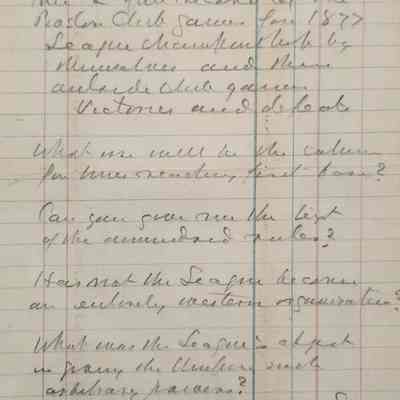 Boston Club games for 1877
League championship by
themselves and their
outside club games
Victories and defeats
What use will be the column
for times reaching first base?
Can you give me the list
of the amended rules?
Has not the League become
an entirely western organization?
What was the League's object
in giving the Umpire such
arbitrary powers?